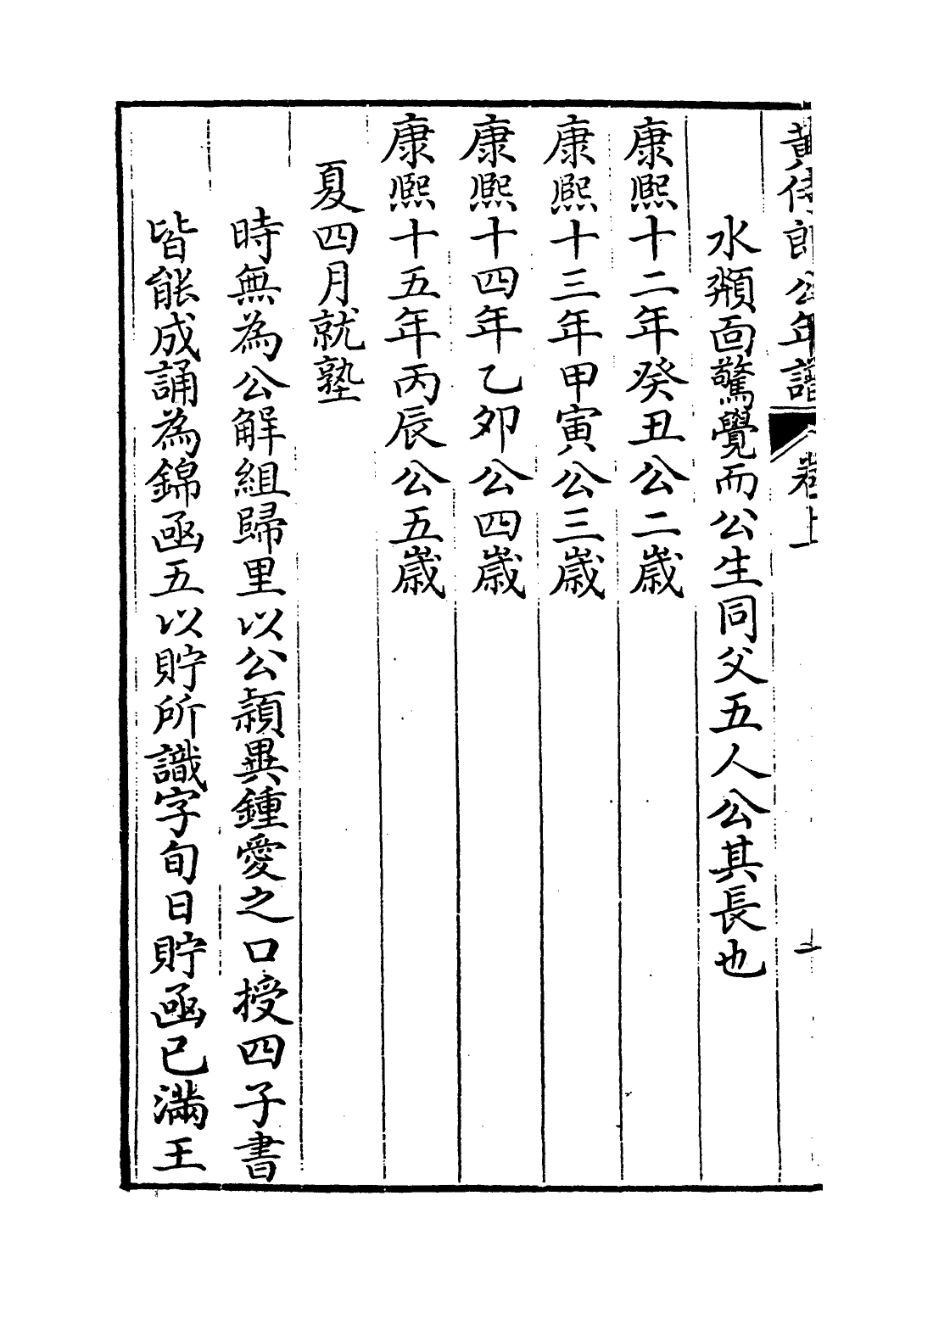 黃侍郎公年譜 卷上
水頮面驚覺而公生同父五人公其長也
康熙十二年癸丑公二歲
康熙十三年甲寅公三歲
康熙十四年乙卯公四歲
康熙十五年丙辰公五歲
夏四月就塾
時無為公解組歸里以公穎異鍾愛之口授四子書
皆能成誦為錦函五以貯所識字旬日貯函已滿王